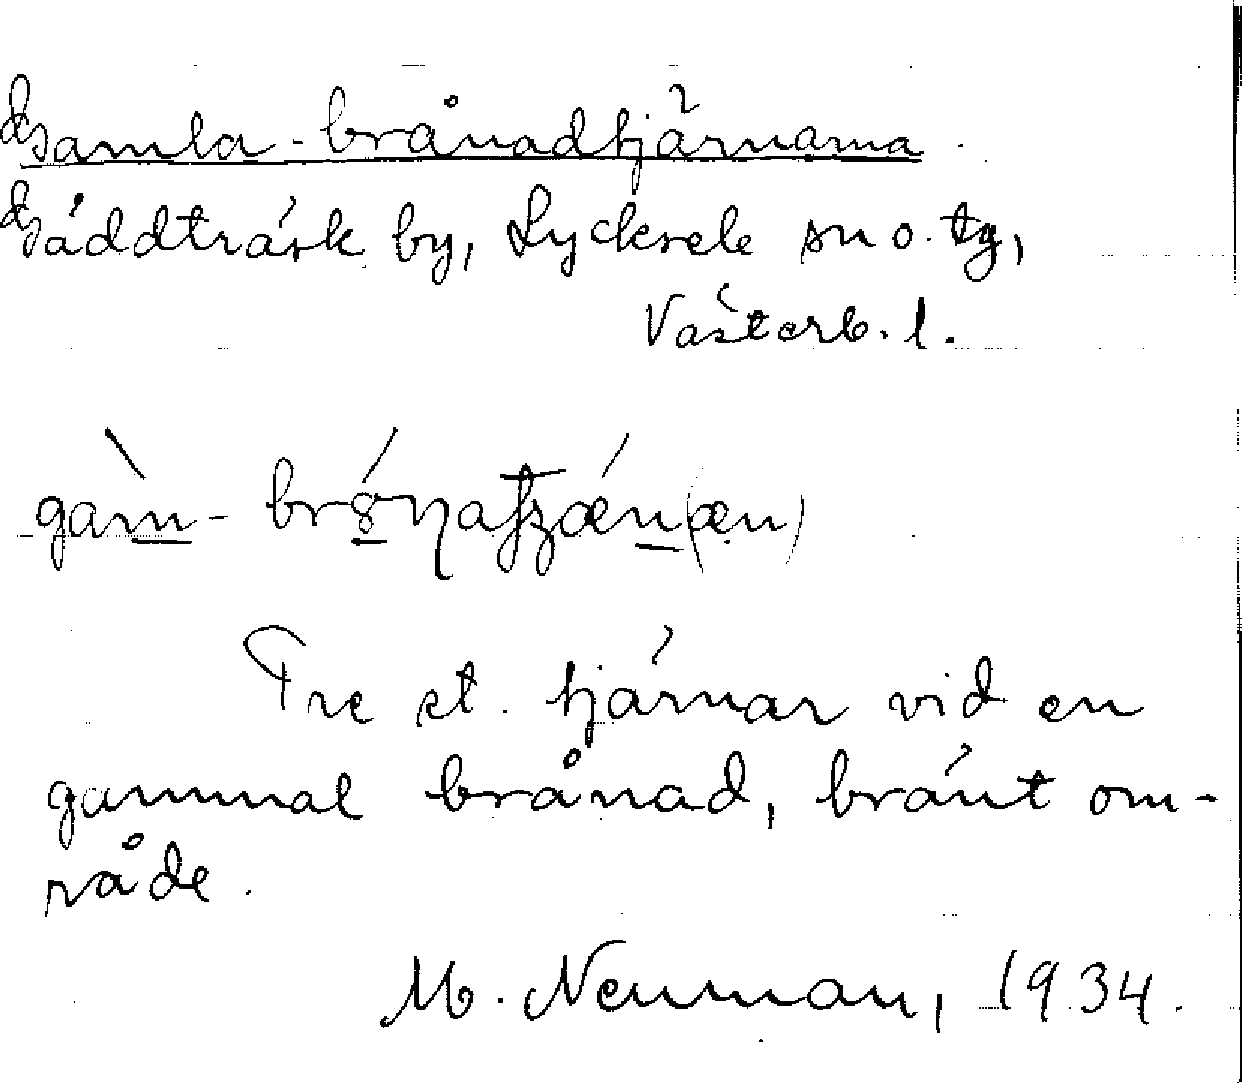 Gamla-brånadtjärnarna.
Gäddträsk by, Lycksele sn o. tg,
Västerb. l.
Tre st. tjärnar vid en
gammal brånad, bränt om-
råde.
M. Neuman, 1934.